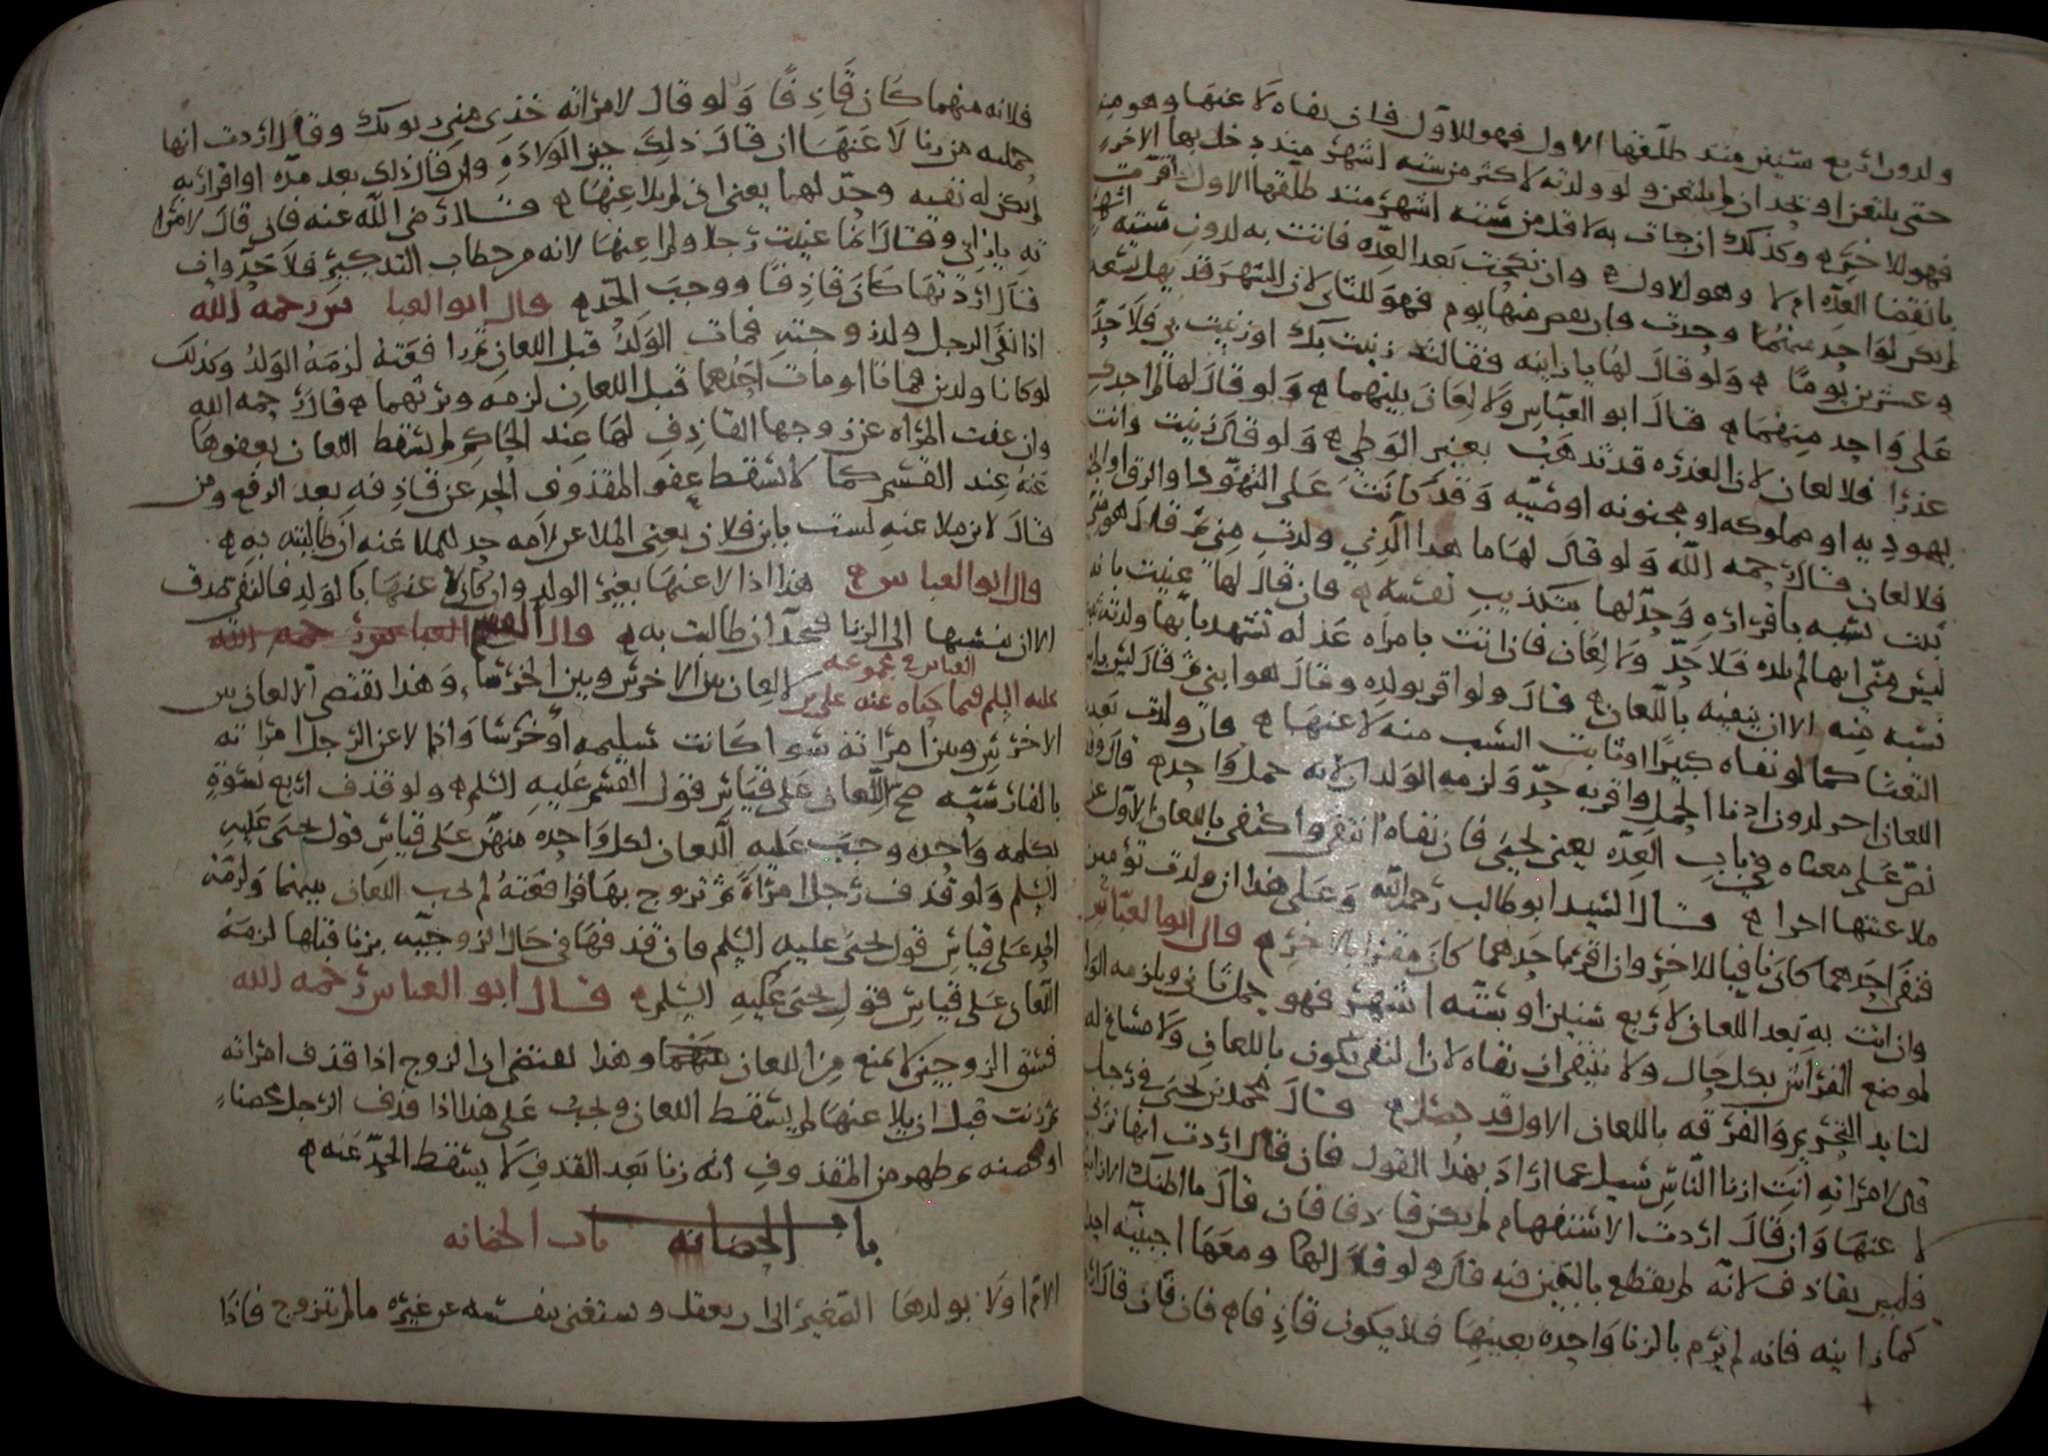 ولدون اربع سنين منذ طلقها الاول فهو للاول فان نفاه لاعنها وهو منه
حتى يلتعن او يحد ان لم يلتعن ولو ولدته لاكثر من سته اشهر منذ دخل بها الاخر
فهو للاخر وكذلك ان جات به لاقل من سته اشهر منذ طلقها الاول اقرت
بانقضا العده ام لا وهو للاول وان نكحت بعد العده فاتت به لدون سته اشهر
لم يكن لواحد منهما وجدت وان نقص منها يوم فهو للثاني لان الشهر قد يهل تسعه
وعشرين يوما ولو قال لها يا زانيه فقالت زنيت بك او زنيت بي فلا حد
على واحد منهما قال ابو العباس ولا لعان بينهما ولو قال لها لم اجدك
عذرا فلا لعان لان العذره قد تذهب بغير الوطي ولو قال زنيت وانت
يهوديه او مملوكه او مجنونه او صبيه وقد كانت على التهود او الرق او
فلا لعان قال رحمه الله ولو قال لها ما هذا الذي ولدت مني ثم قال هو مني
ثبت نسبه باقراره وحد لها بتكذيب نفسه فان قال لها عنيت بانه
ليس مني انها لم تلده فلا حد ولا لعان فان اتت بامراه عدله تشهد بانها ولدته
نسبه منه الا ان ينفيه باللعان قال ولو اقر بولده وقال هو ابني ثم قال ليس بابني
التعنا كما لو نفاه كبيرا او ثابت النسب منه لاعنها فان ولدت بعد
اللعان اخر لدون ادنا الحمل واقر به حد ولزمه الولدان لانه حمل واحد قال
نص على معناه في باب العده يعني يحيى فان نفاه انتفى واكتفى باللعان الاول عن
ملاعنتها اخرا قال السيد ابو طالب رحمه الله وعلى هذا ان ولدت توءمين
فنفى احدهما كان نافيا للاخر وان اقر باحدهما كان مقرا بالاخر قال ابو العباس
وان اتت به بعد اللعان لاربع سنين او بسته اشهر فهو حمل ثاني ويلزمه الولد
لموضع الفراش بكل حال ولا ينتفي ان نفاه لان النفي يكون باللعان ولا مساغ له
لتابد التحريم والفرقه باللعان الاول قد حصل قال محمد بن يحيى في رجل
قال لامراته انت ازنا الناس سيل عما اراد بهذا القول فان قال اردت انها تزني
لاعنها وان قال اردت الاستفهام لم يكن قاذفا فان قال ما اظنك الا زانيه
فليس بقاذف لانه لم يقطع باليقين فيه قال ولو قال لها ومعها اجنبيه احد
كما زانيه فانه لم يرم بالزنا واحده بعينها فلا يكون قاذفا فان قال
فلانه منهما كان قاذفا ولو قال لامراته خذي مني بونك وقال اردت انها
حملته من زنا لاعنها ان قال ذلك حين الولاده وان قال ذلك بعد مده او اقرار به
لم يكن له نفيه وحد لها يعني ان لم يلاعنها قال رضي الله عنه فان قال لامرا
ته يا زاني وقال انما عنيت رجلا ولم اعنها لانه من خطاب التذكير فلا حد وان
قال اردتها كان قاذفا ووجب الحد قال ابو العباس رحمه الله
اذا نفى الرجل ولد زوجته فمات الولد قبل اللعان ثم رافعته لزمه الولد وكذلك
لو كانا ولدين فماتا او مات احدهما قبل اللعان لزمه وترثهما قال رحمه الله
وان عفت المراه عن زوجها القاذف لها عند الحاكم لم يسقط اللعان بعفوها
عنه عند القسم كما لا يسقط عفو المقذوف الحد عن قاذفه بعد الرفع ومن
قال لابن ملاعنه لست بابن فلان يعني الملاعن لامه حد للملاعنه ان طالبته به
قال ابو العباس هذا اذا لاعنها بغير الولد وان كان لاعنها بالولد فالنفي صدق
الا ان ينسبها الى الزنا فيحد ان طالبت به قال القسم العباس رحمه الله
العباس في مجموعه
عليه السلم فيما حكاه عنه علي بن لا لعان بين الاخرس وبين الخرسا وهذا يقتضي الا لعان بين
الاخرس وبين امراته سوا كانت سليمه او خرسا واذا لاعن الرجل امراته
بالفارسيه صح اللعان على قياس قول القسم عليه السلم ولو قذف اربع نسوه
بكلمه واحده وجب عليه اللعان لكل واحده منهن على قياس قول يحيى عليه
السلم ولو قذف رجل امراة ثم تزوج بها فرافعته لم يجب اللعان بينهما ولزمه
الحد على قياس قول يحيى عليه السلم فان قذفها في حال الزوجيه بزنا قبلها لزمه
اللعان على قياس قول يحيى عليه السلم قال ابو العباس رحمه الله
فسق الزوجين لا يمنع من اللعان منهما وهذا يقتضي ان الزوج اذا قذف امراته
ثم زنت قبل ان يلاعنها لم يسقط اللعان ويجب على هذا اذا قذف الرجل محصنا
او محصنه ثم ظهر من المقذوف انه زنا بعد القذف لا يسقط الحد عنه
باب الحضانه باب الحضانه
الام اولا بولدها الصغير الى ان يعقل ويستغني بنفسه عن غيره ما لم تتزوج فاذا